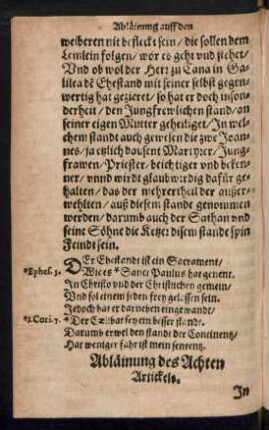 Ableinung auff den
weiberen nit befleckt sein / die sollen dem
Lemlein folgen / wor es geht vnd ziehet /
Vnd ob wol der Herr zu Cana in Ga-
lilea dē Ehestand mit seiner selbst gegen-
wertig hat gezieret / so hat er doch inson-
derheit / den Jungfrewlichen stand / an
seiner eigen Mutter geheiliget / In wel-
chem standt auch gewesen die zwe Joan-
nes / ja etzlich dausent Martyrer / Jung-
frawen / Priester / beichtiger vnd beken-
ner / vnnd wirdt glaubwirdig dafür ge-
halten / das der mehrertheil der außer-
wehlten / auß diesem stande genommen
werden / darumb auch der Sathan vnd
seine Söhne die Ketzer disem stande spin
Feindt sein.
*Ephes. 5.
DEr Ehestandt ist ein Sacrament /
Wie es * Sanct Paulus hat genent.
In Christo vnd der Christlichen gemein /
Vnd sol einem jeden frey gelassen sein.
Jedoch hat er darneben eingewandt /
*1. Cori. 7.
* Der Ca̅libat sey ein besser standt.
Darumb erwel den standt der Continentz /
Hat weniger fahr ist mein sententz.
Abläinung des Achten
Artickels.
In